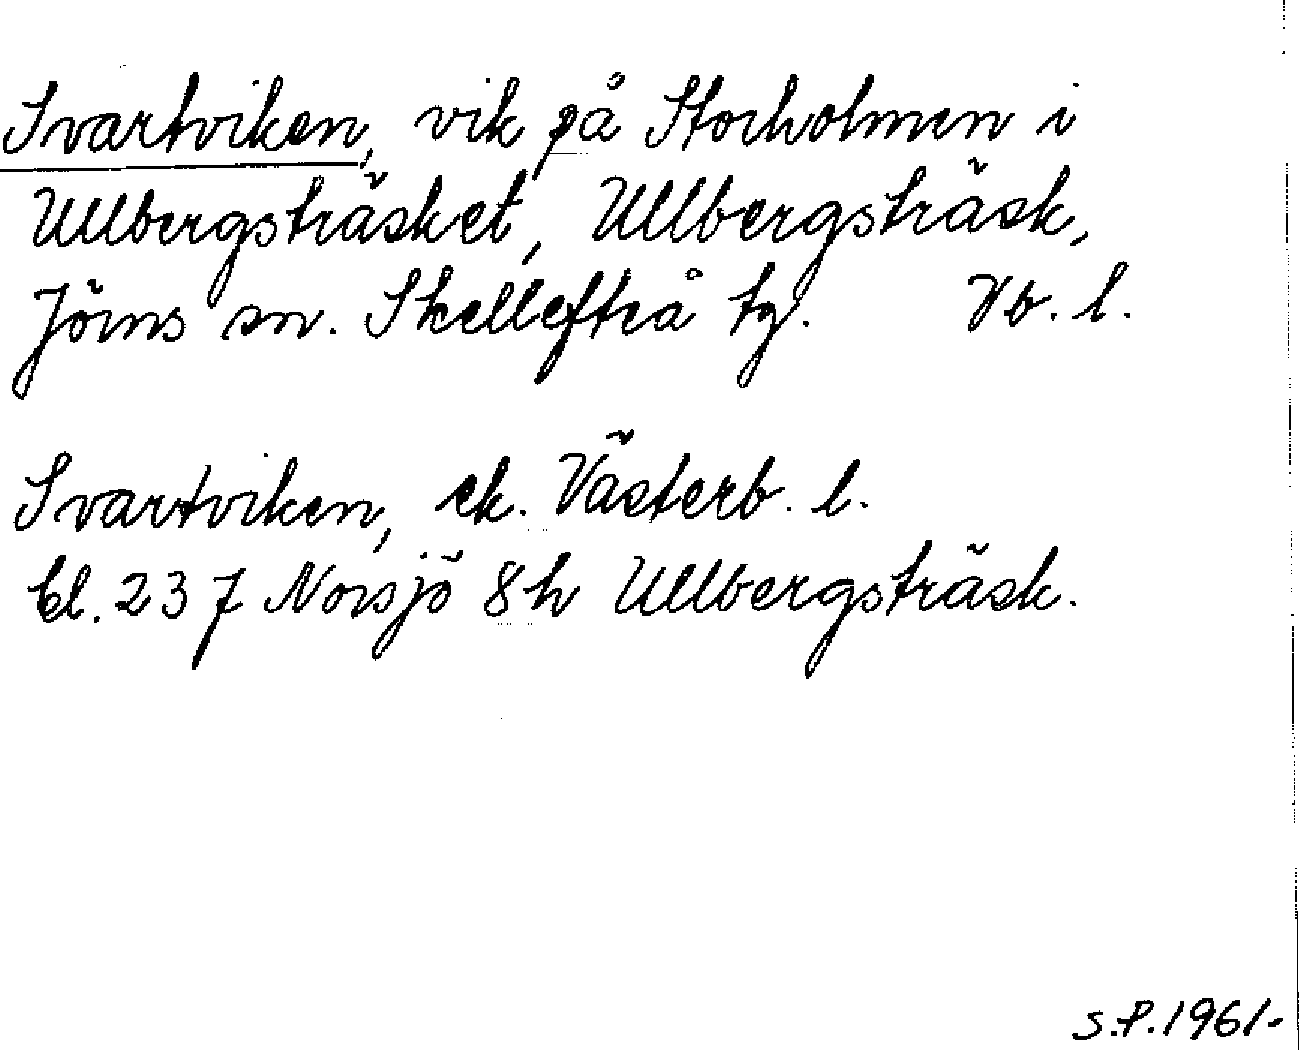 Svartviken, vik på Storholmen i
Ullbergsträsket, Ullbergsträsk,
Jörns sn. Skellefteå tg. Vb. l.
Svartviken, ek. Västerb. l.
bl. 237 Norsjö 8h Ullbergsträsk.
S.P. 1961-